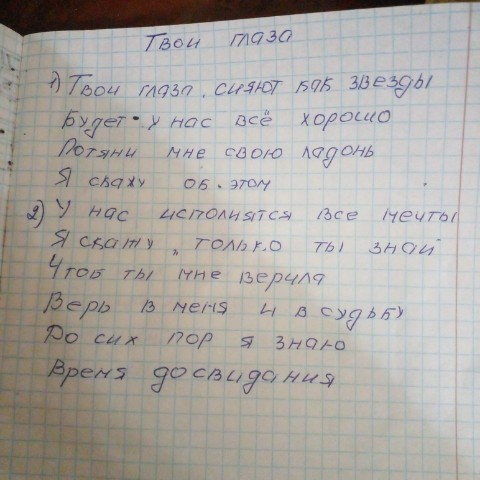 Твои глаза
1) Твои глаза, сияют как звезды
Будет у нас всё хорошо
Потяни мне свою ладонь
Я скажу об этом
2) У нас исполнятся все мечты
Я скажу, только ты знай
Чтоб ты мне верила
Верь в меня и в судьбу
До сих пор я знаю
Время досвидания